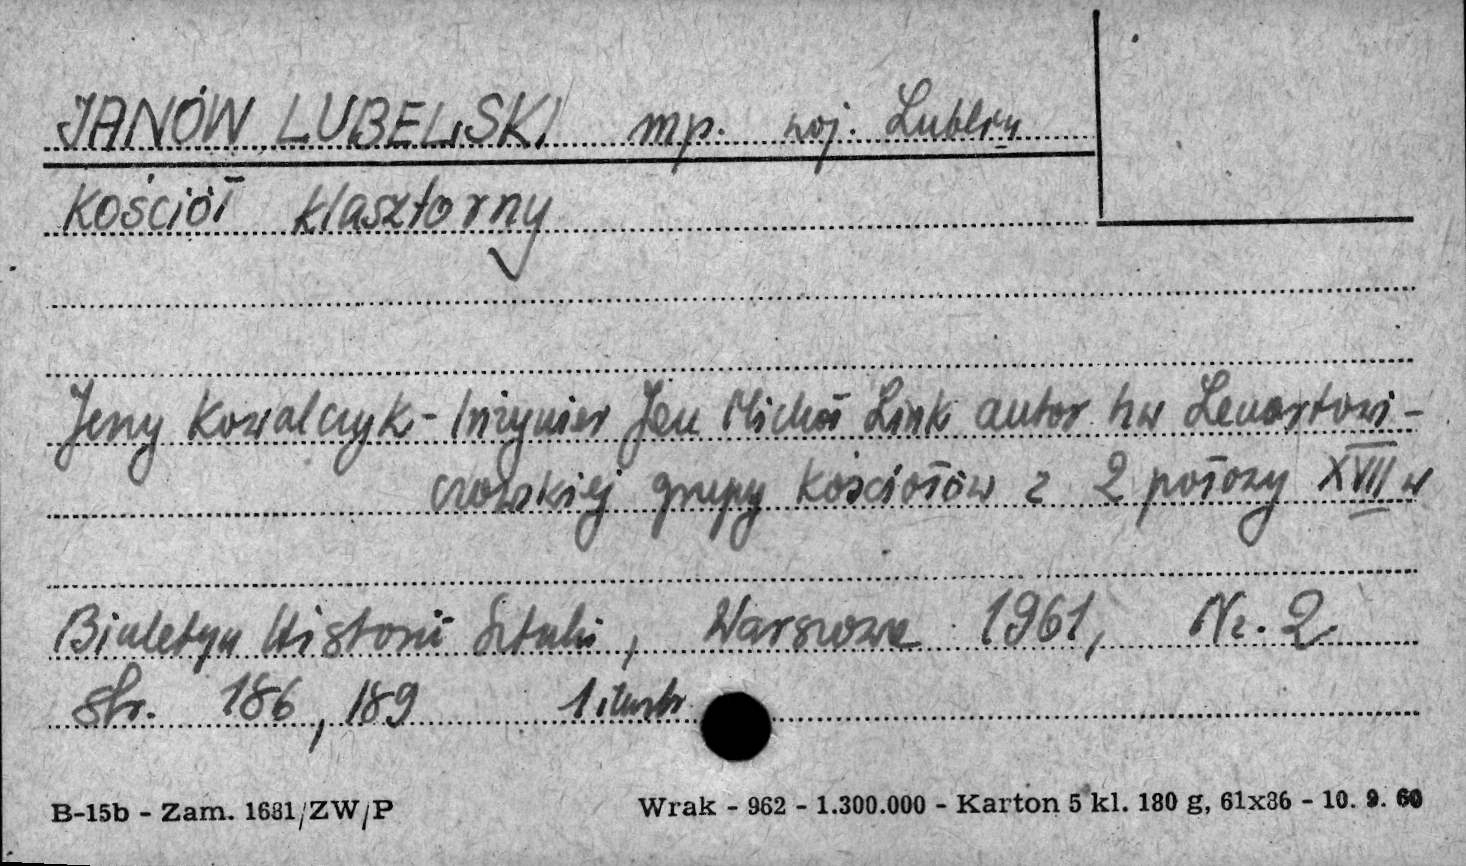 JANÓW LUBELSKI mp. woj. Lublin
Kościół klasztorny
Jerzy Kowalczyk - Inżynier Jan Michał Link autor tzw Lenartowi-
czowskiej grupy kościołów z 2 połowy XVIII w
Biuletyn Historii Sztuki, Warszawa 1961, Nr. 2
str. 186, 189 1 ilustr
B-15b - Zam. 1681/ZW/P
Wrak - 962 - 1.300.000 - Karton 5 kl. 180 g, 61x86 - 10. 9. 60